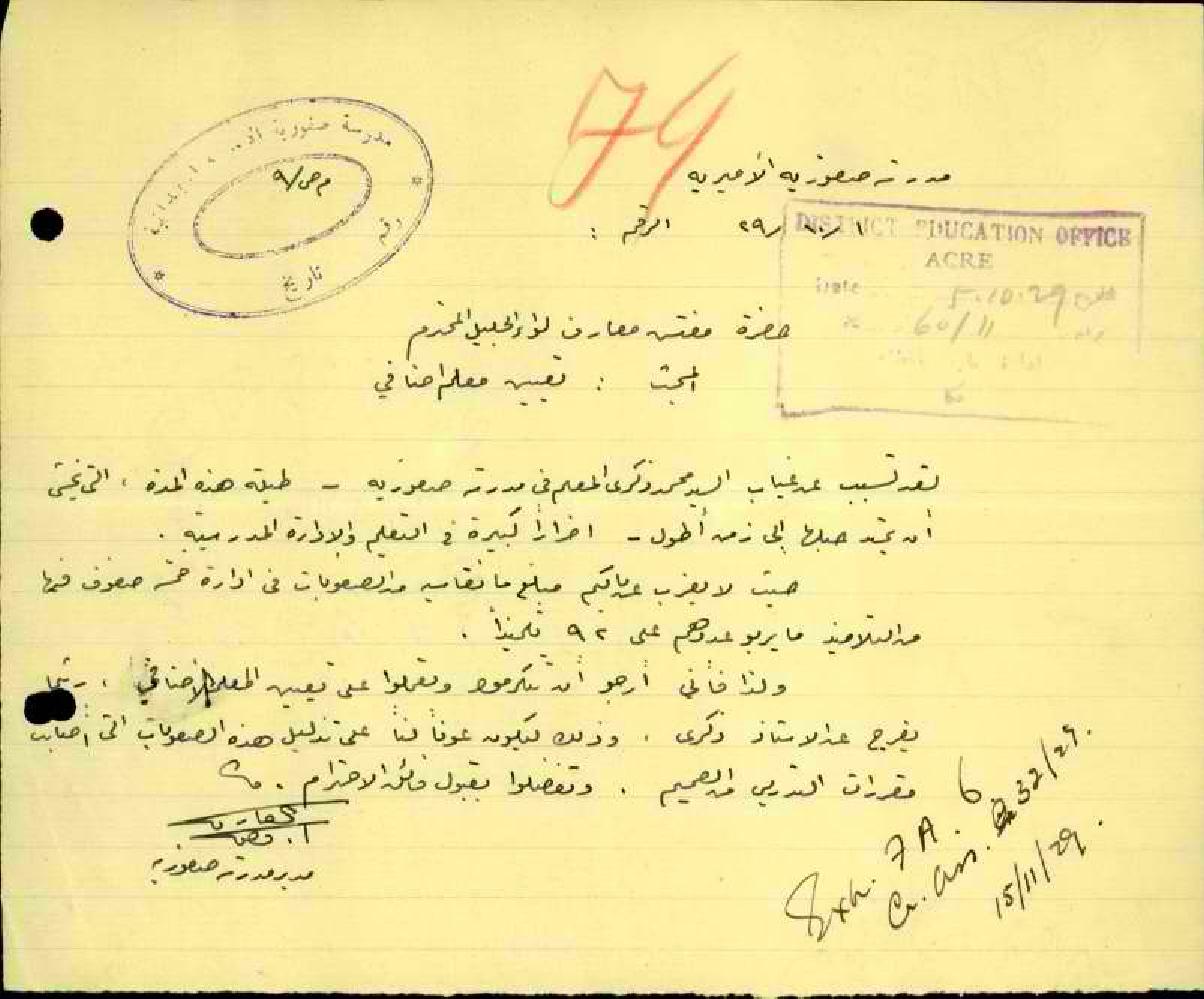 79
مدرسة صفورية
رقم
تاريخ
م ص/٩
مدرسة صفورية الأميرية
١/١٠/٢٩ الرقم :
DISTRICT EDUCATION OFFICE
ACRE
Date 5.10.29
60/11
حضرة مفتش معارف لواء الجليل المحترم
المبحث : تعيين معلم اضافي
لقد تسبب عن غياب السيد محمد زكري المعلم في مدرسة صفورية - طيلة هذه المدة ، التي يخشى
ان يمتد حبلها إلى زمن أطول - اضراراً كبيرة في التعليم والادارة المدرسية .
حيث لا يغرب عن بالكم مبلغ ما نقاسيه من الصعوبات في ادارة خمسة صفوف فيها
من التلاميذ ما يربو عددهم على ٩٢ تلميذاً .
ولذا فأني أرجو أن تتكرموا وتعملوا على تعيين المعلم الاضافي ، ريثما
يفرج عن الاستاذ زكري ، وذلك ليكون عوناً لنا على تذليل هذه الصعوبات التي أصابت
مقررات التدريس من الصميم . وتفضلوا بقبول فائق الاحترام .
مدير مدرسة صفورية
Exh. 7A. 6
Cr. Ass. 32/29.
15/11/29.